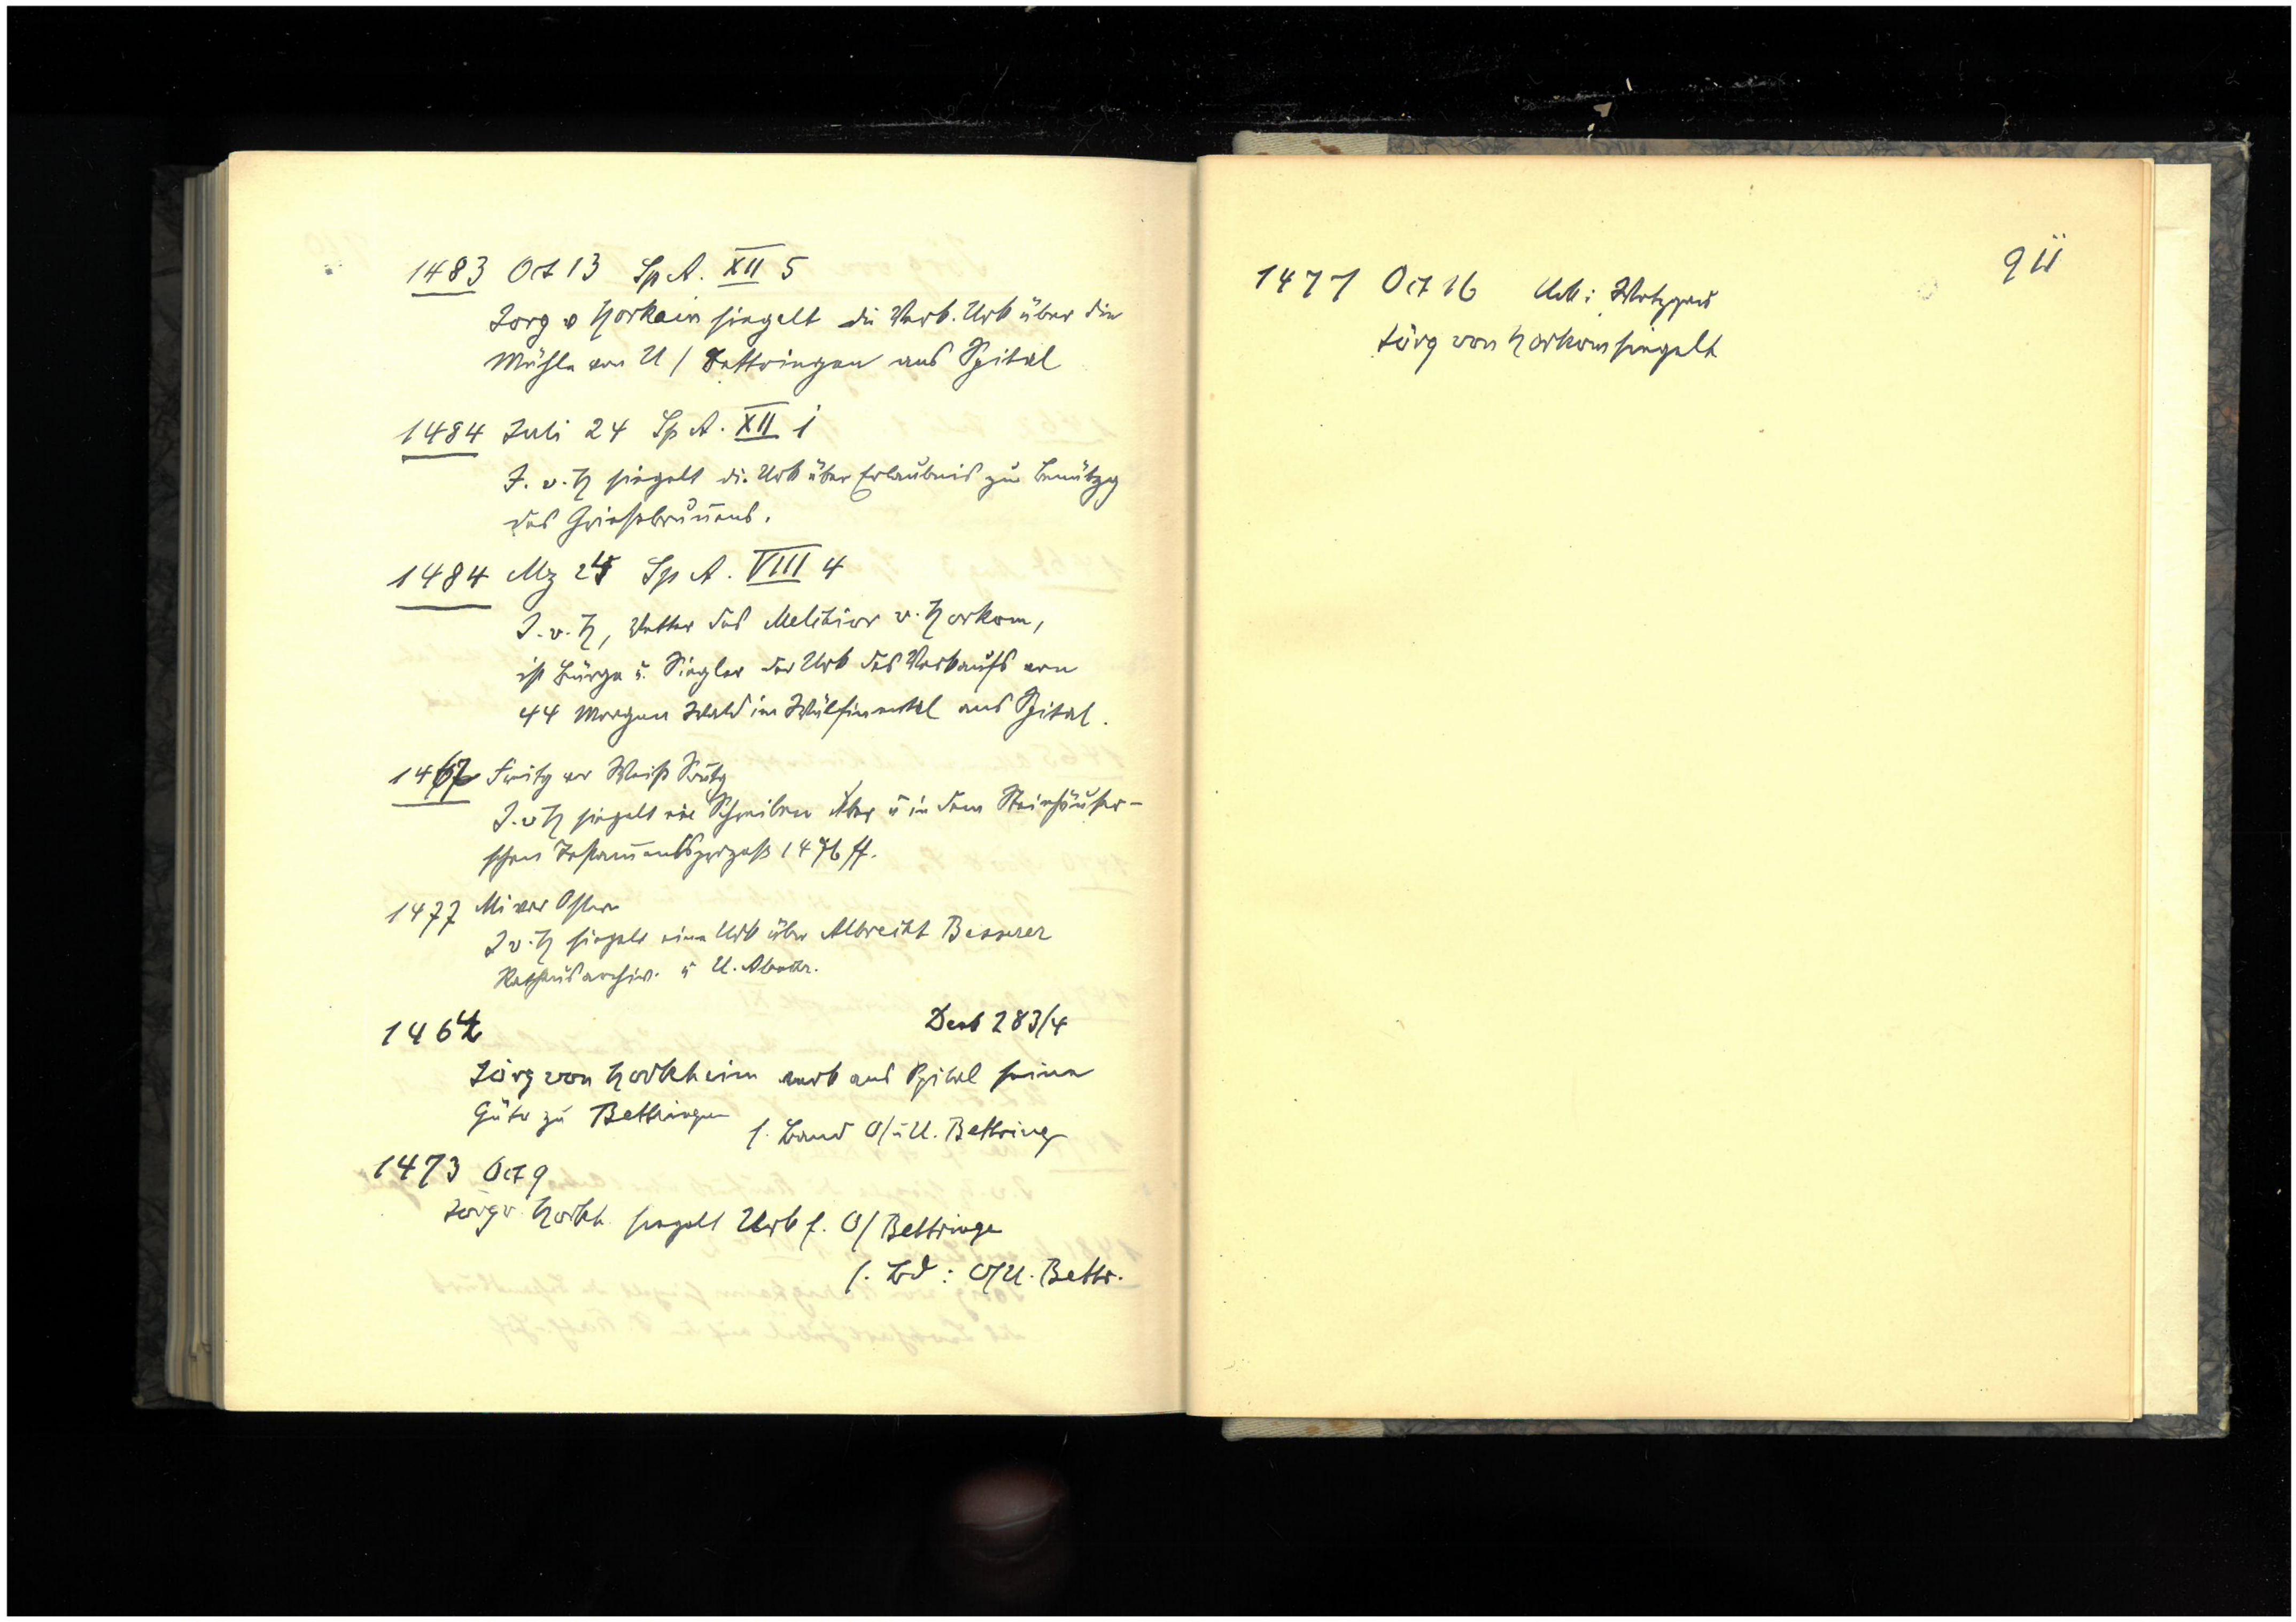 1483 Oct 13 Sp A. XII 5
Jörg v Horkein siegelt die Verk. Urk über die
Mühle von U/Bettringen ans Spital
1484 Juli 24 Sp A. XII i
J. v. H siegelt di. Urk über Erlaubnis zur Benützg
des Griesbrunnens.
1484 Mz 24 Sp A. VIII 4
J. v. H, Vetter des Melchior v. Horkom,
ist Bürge u. Siegler der Urk des Verkaufs von
44 Morgen Wald im ans Spital.
1467 Freitg vor Weiß Sontg
J. v H siegelt ein Schreiben über u in dem Steinhäuser-
schen Testamentsprozeß 1476 ff.
1477 Mi vor Ostern
J v. H siegelt eine Urk über Albrecht Besserer
Rathausarchiv. u U.
1464 Deb 283/4
Jörg von Horkheim verk ans Spital seine
Güter zu Bettringen
s. Band O/u U. Bettring
1473 Oct 9
Jörg v. Horkh. siegelt Urk f. O/Bettringe
s. Bd: O/U. Bettr.
911
1477 Oct 16 Urk: Wetzgau
Jörg von Horkom siegelt